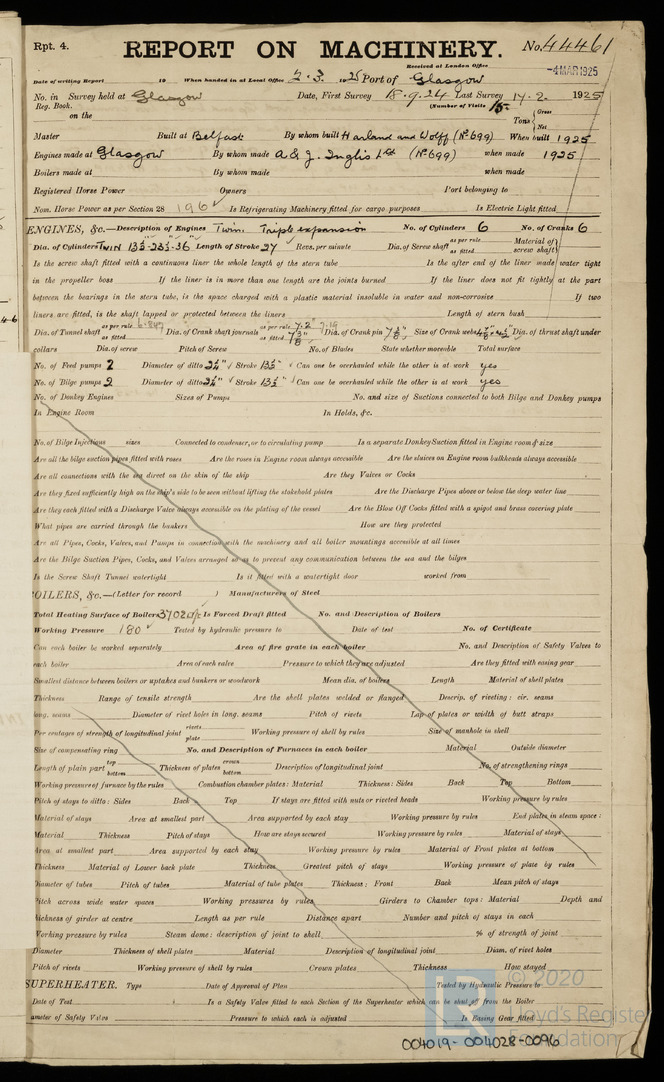 Rpt. 4.
REPORT ON MACHINERY.
No. 44461
Received at London Office
-4 MAR 1925
Date of writing Report 19 When handed in at Local Office 2.3. 1925 Port of Glasgow
No. in Survey held at Glasgow Date, First Survey 18.9.24 Last Survey 14.2. 1925
Reg. Book. (Number of Visits 15.
on the Tons { Gross Net
Master Built at Belfast By whom built Harland and Wolff (No 699) When built 1925
Engines made at Glasgow By whom made A & J. Inglis Ltd (No 699) when made 1925
Boilers made at By whom made when made
Registered Horse Power Owners Port belonging to
Nom. Horse Power as per Section 28 196 Is Refrigerating Machinery fitted for cargo purposes Is Electric Light fitted
ENGINES, &c.—Description of Engines Twin. Triple expansion No. of Cylinders 6 No. of Cranks 6
Dia. of Cylinders Length of Stroke 27 Revs. per minute Dia. of Screw shaft as per rule as fitted Material of screw shaft
Is the screw shaft fitted with a continuous liner the whole length of the stern tube Is the after end of the liner made water tight
in the propeller boss If the liner is in more than one length are the joints burned If the liner does not fit tightly at the part
between the bearings in the stern tube, is the space charged with a plastic material insoluble in water and non-corrosive If two
liners are fitted, is the shaft lapped or protected between the liners Length of stern bush
Dia. of Tunnel shaft as per rule as fitted Dia. of Crank shaft journals as per rule 7.2" as fitted 7 3/8" Dia. of Crank pin 7 3/8" Size of Crank webs Dia. of thrust shaft under
collars Dia. of screw Pitch of Screw No. of Blades State whether moveable Total surface
No. of Feed pumps 2 Diameter of ditto Stroke 13½" Can one be overhauled while the other is at work yes
No. of Bilge pumps 2 Diameter of ditto Stroke 13½" Can one be overhauled while the other is at work yes
No. of Donkey Engines Sizes of Pumps No. and size of Suctions connected to both Bilge and Donkey pumps
In Engine Room In Holds, &c.
No. of Bilge Injections sizes Connected to condenser, or to circulating pump Is a separate Donkey Suction fitted in Engine room & size
Are all the bilge suction pipes fitted with roses Are the roses in Engine room always accessible Are the sluices on Engine room bulkheads always accessible
Are all connections with the sea direct on the skin of the ship Are they Valves or Cocks
Are they fixed sufficiently high on the ship's side to be seen without lifting the stokehold plates Are the Discharge Pipes above or below the deep water line
Are they each fitted with a Discharge Valve always accessible on the plating of the vessel Are the Blow Off Cocks fitted with a spigot and brass covering plate
What pipes are carried through the bunkers How are they protected
Are all Pipes, Cocks, Valves, and Pumps in connection with the machinery and all boiler mountings accessible at all times
Are the Bilge Suction Pipes, Cocks, and Valves arranged so as to prevent any communication between the sea and the bilges
Is the Screw Shaft Tunnel watertight Is it fitted with a watertight door worked from
OILERS, &c.—(Letter for record ) Manufacturers of Steel
Total Heating Surface of Boilers 3702 Is Forced Draft fitted No. and Description of Boilers
Working Pressure 180 Tested by hydraulic pressure to Date of test No. of Certificate
Can each boiler be worked separately Area of fire grate in each boiler No. and Description of Safety Valves to
each boiler Area of each valve Pressure to which they are adjusted Are they fitted with easing gear
Smallest distance between boilers or uptakes and bunkers or woodwork Mean dia. of boilers Length Material of shell plates
Thickness Range of tensile strength Are the shell plates welded or flanged Descrip. of riveting: cir. seams
long. seams Diameter of rivet holes in long. seams Pitch of rivets Lap of plates or width of butt straps
Per centages of strength of longitudinal joint rivets plate Working pressure of shell by rules Size of manhole in shell
Size of compensating ring No. and Description of Furnaces in each boiler Material Outside diameter
Length of plain part top bottom Thickness of plates crown bottom Description of longitudinal joint No. of strengthening rings
Working pressure of furnace by the rules Combustion chamber plates: Material Thickness: Sides Back Top Bottom
Pitch of stays to ditto: Sides Back Top If stays are fitted with nuts or riveted heads Working pressure by rules
Material of stays Area at smallest part Area supported by each stay Working pressure by rules End plates in steam space:
Material Thickness Pitch of stays How are stays secured Working pressure by rules Material of stays
Area at smallest part Area supported by each stay Working pressure by rules Material of Front plates at bottom
Thickness Material of Lower back plate Thickness Greatest pitch of stays Working pressure of plate by rules
Diameter of tubes Pitch of tubes Material of tube plates Thickness: Front Back Mean pitch of stays
Pitch across wide water spaces Working pressures by rules Girders to Chamber tops: Material Depth and
thickness of girder at centre Length as per rule Distance apart Number and pitch of stays in each
Working pressure by rules Steam dome: description of joint to shell % of strength of joint
Diameter Thickness of shell plates Material Description of longitudinal joint Diam. of rivet holes
Pitch of rivets Working pressure of shell by rules Crown plates Thickness How stayed
SUPERHEATER. Type Date of Approval of Plan Tested by Hydraulic Pressure to
Date of Test Is a Safety Valve fitted to each Section of the Superheater which can be shut off from the Boiler
ameter of Safety Valve Pressure to which each is adjusted Is Easing Gear fitted
© 2020
Lloyd's Registe
Foundation
004019-004028-0096